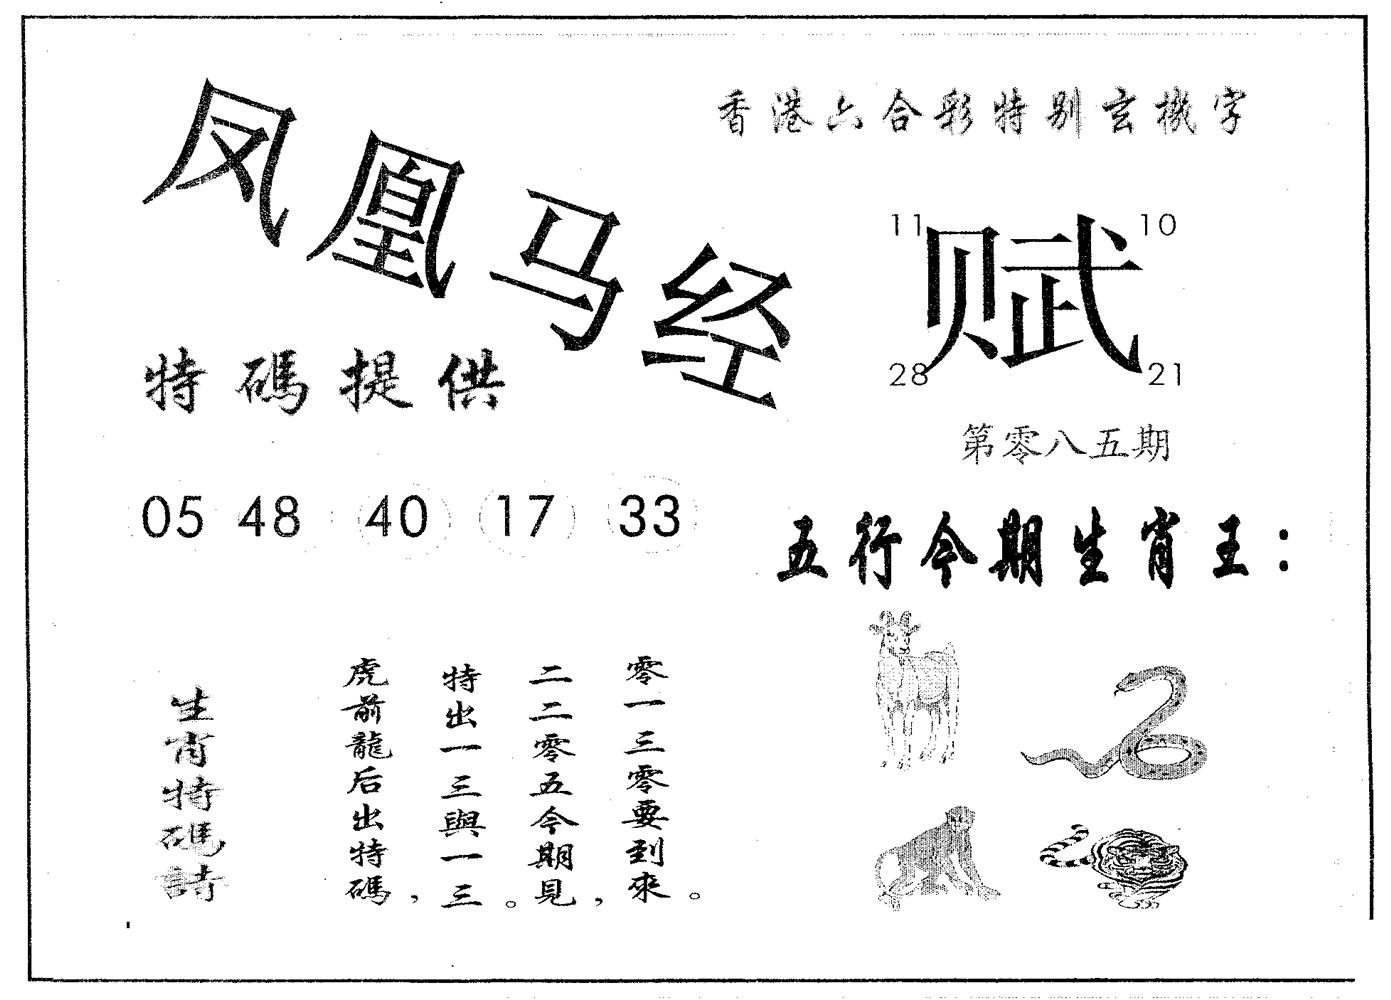 凤凰马经
香港六合彩特别玄機字
11 10
赋
28 21
特碼提供
第零八五期
05 48 40 17 33
五行今期生肖王：
生肖特碼詩
虎前龍后出特碼，
特出一三與一三。
二二零五今期見，
零一三零要到來。